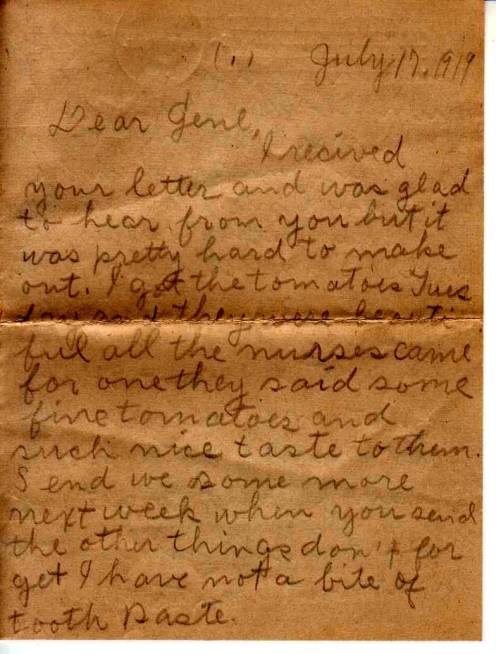 (1.) July 17, 1919
Dear Gene,
I recived
your letter and was glad
to hear from you but it
was pretty hard to make
out. I got the tomatoes Tues
day and they were beauti
ful all the nurses came
for one they said some
fine tomatoes and
such nice taste to them.
Send we some more
next week when you send
the other things don't for
get I have not a bite of
tooth paste.